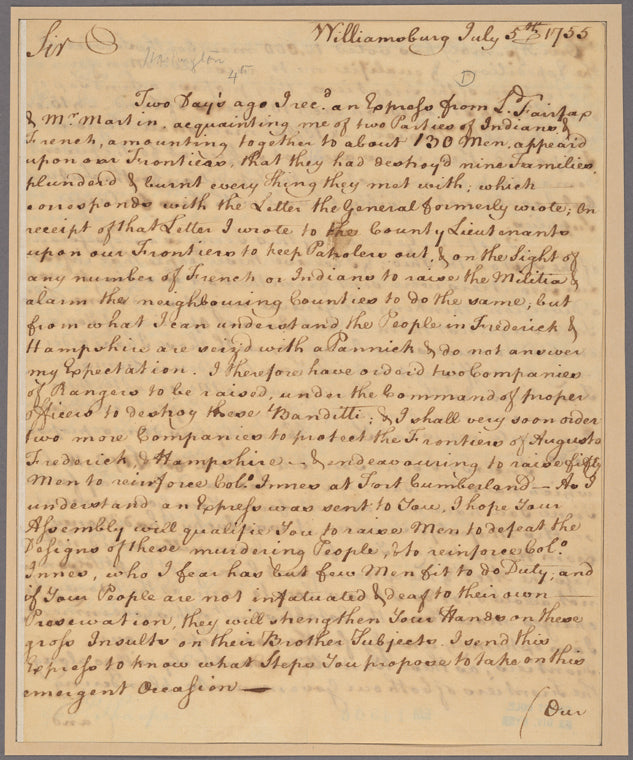 Williamsburg July 5th 1755
Sir
Washington
4th
D
Two Day's ago I rec.d an Express from L. Fairfax
& Mr. Martin, acquainting me of two Parties of Indians &
French, amounting together to about 130 Men, appear'd
upon our Frontiers, that they had destroy'd nine Families,
plunder'd & burnt every thing they met with; which
corresponds with the Letter the General formerly wrote; On
receipt of that Letter I wrote to the County Lieutenants
upon our Frontiers to keep Patrolers out, & on the Sight of
any number of French or Indians to raise the Militia &
alarm the neighbouring Counties to do the same; but
from what I can understand the People in Frederick &
Hampshire are seiz'd with a Pannick & do not answer
my Expectation. I therefore have order'd two Companies
of Rangers to be raised, under the Command of proper
Officers to destroy these Banditti; & I shall very soon order
two more Companies to protect the Frontiers of Augusta
Frederick & Hampshire — & endeavouring to raise fifty
Men to reinforce Col.o Innes at Fort Cumberland — As I
understand an Express was sent to You, I hope Your
Assembly will qualifie You to raise Men to defeat the
Designs of these murdering People, & to reinforce Col.o
Innes, who I fear has but few Men fit to do Duty, and
if Your People are not infatuated & deaf to their own
Preservation, they will strengthen Your Hands on these
gross Insults on their Brother Subjects. I send this
Express to know what Steps You propose to take on this
emergent Occasion —
Our